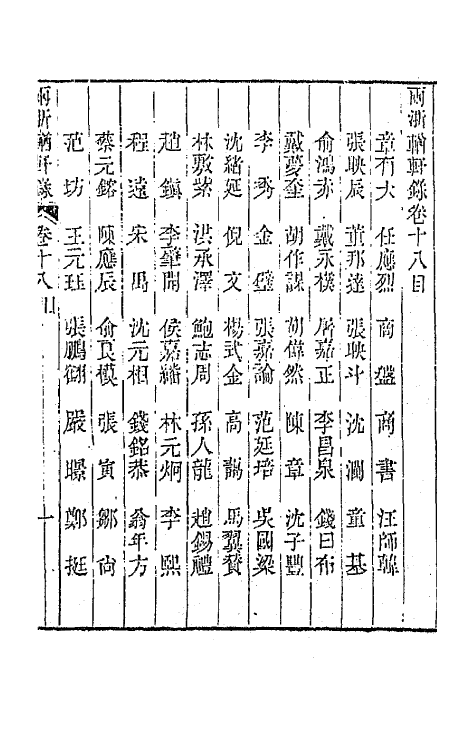 兩浙輶軒錄卷十八目
章有大 任應烈 商盤 商書 汪師韓
張映辰 董邦達 張映斗 沈瀾 童基
俞鴻亦 戴永樸 屠嘉正 李昌泉 錢曰布
戴夢奎 胡作謀 胡偉然 陳章 沈子豐
李秀 金璧 張嘉論 范廷培 吳國梁
沈緒延 倪文 楊武金 高 馬翼贊
林敷紫 洪承澤 鮑志周 孫人龍 趙錫禮
趙鎮 李肇開 侯嘉繙 林元炯 李熙
程遠 宋禹 沈元相 錢銘恭 翁年方
蔡元鎔 陳應辰 俞艮模 張寅 鄒尙
范坊 王元珏 張鵬翮 嚴 鄭挺
兩浙輶軒錄 卷十八目 一